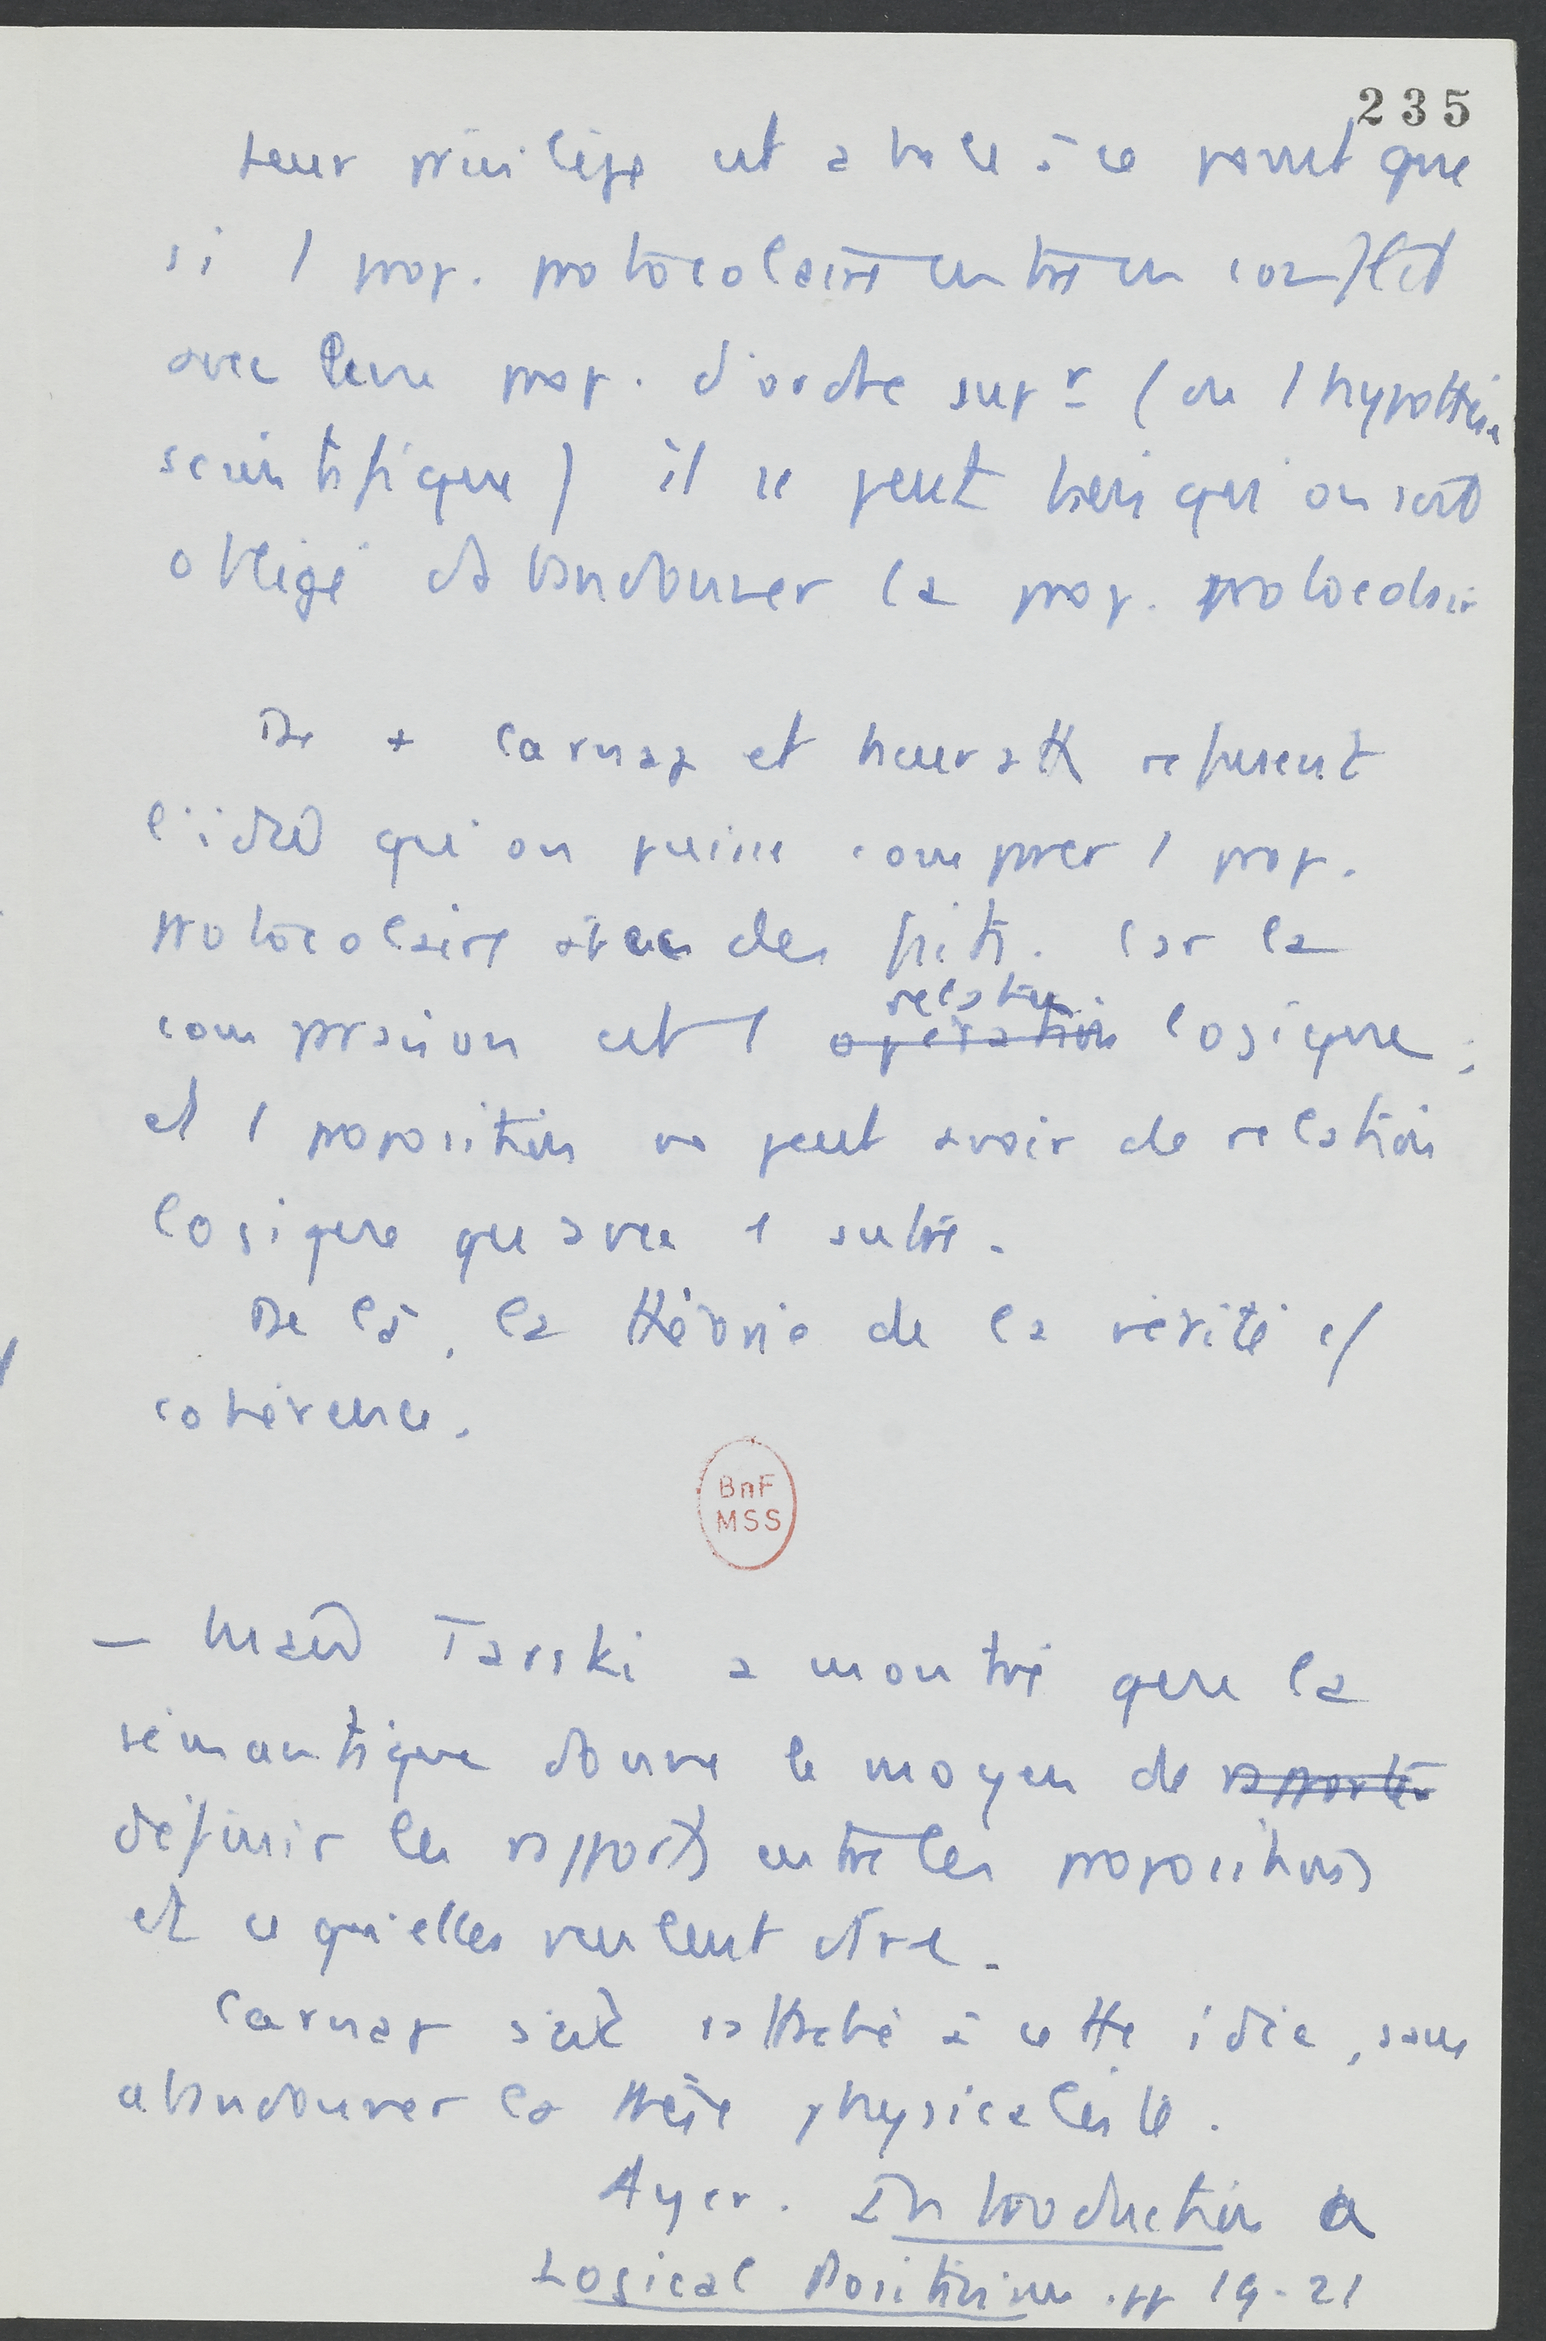 235
Leur privilège est aboli à ce point que
si 1 prop. protocolaire entre en conflit
avec l'une prop. d'ordre supr (ou 1 hypothèse
scientifique) il se peut bien qu'on soit
obligé d'abandonner la prop. protocolaire
De + Carnap et Neurath refusent
l'idée qu'on puisse comparer 1 prop.
protocolaire avec des faits. Car la
comparaison est 1 opération relation logique ;
et 1 proposition ne peut avoir de relation
logique qu'avec 1 autre.
De là, la théorie de la vérité c/
cohérence.
BnF
MSS
— Mais Tarski a montré que la
sémantique donne le moyen de rapporter
définir les rapports entre les propositions
et ce qu'elles veulent dire.
Carnap s'est rattaché à cette idée, sans
abandonner la thèse physicaliste.
Ayer. Introduction à
Logical Positivism. pp 19-21